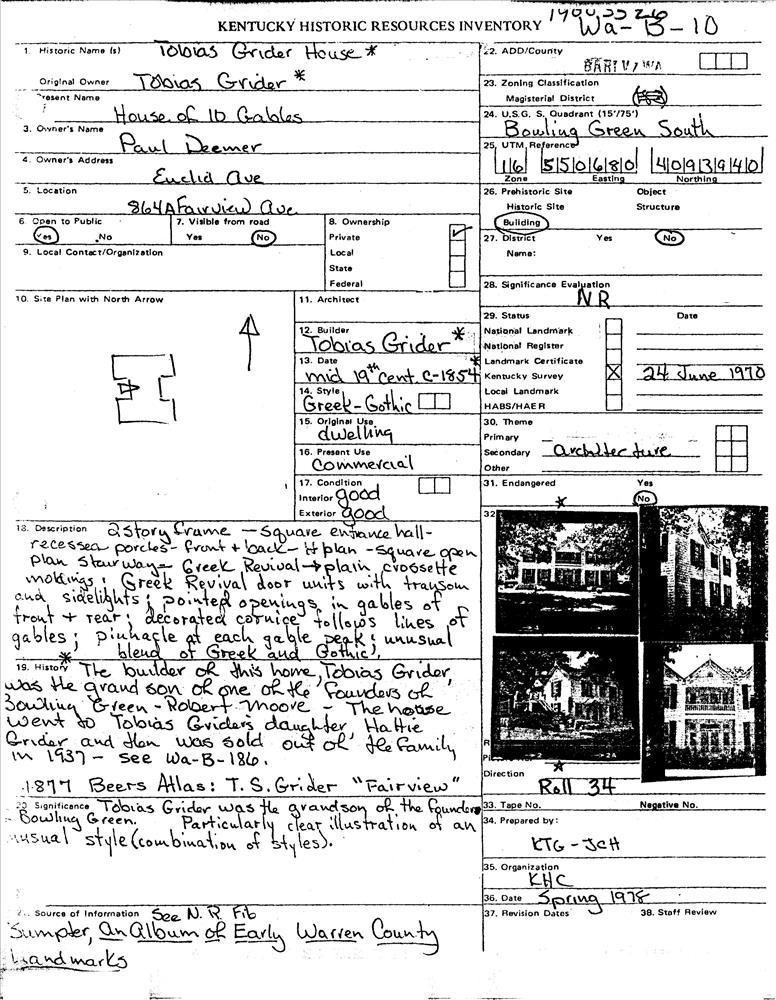 KENTUCKY HISTORIC RESOURCES INVENTORY
Wa-B-10
1. Historic Name (s) Tobias Grider House *
Original Owner Tobias Grider *
Present Name
House of 10 Gables
3. Owner's Name
Paul Deemer
4. Owner's Address
Euclid Ave
5. Location
864A Fairview Ave.
6. Open to Public
Yes No
7. Visible from road
Yes No
8. Ownership
Private
Local
State
Federal
9. Local Contact/Organization
10. Site Plan with North Arrow
11. Architect
12. Builder *
Tobias Grider
13. Date *
mid 19th cent. c-1854
14. Style
Greek-Gothic
15. Original Use
dwelling
16. Present Use
Commercial
17. Condition
Interior good
Exterior good
18. Description 2 story frame - square entrance hall-
recessed porches - front + back - H plan - square open
plan stairway - Greek Revival → plain crossette
moldings; Greek Revival door units with transom
and sidelights; pointed openings in gables of
front + rear; decorated cornice follows lines of
gables; pinnacle at each gable peak; unusual
blend of Greek and Gothic).
19. History * The builder of this home, Tobias Grider,
was the grand son of one of the founders of
Bowling Green - Robert Moore - The house
went to Tobias Grider's daughter, Hattie
Grider and then was sold out of the family
in 1937 - see Wa-B-186.
1877 Beers Atlas: T.S. Grider "Fairview"
20. Significance Tobias Grider was the grandson of the founder
Bowling Green. Particularly clear illustration of an
unusual style (combination of styles).
21. Source of Information See N.R. Fib
Sumpter, An Album of Early Warren County
Landmarks
22. ADD/County
23. Zoning Classification
Magisterial District
24. U.S.G. S. Quadrant (15'/75')
Bowling Green South
25. UTM Reference
16 550680 4093940
Zone Easting Northing
26. Prehistoric Site Object
Historic Site Structure
Building
27. District Yes No
Name:
28. Significance Evaluation
NR
29. Status Date
National Landmark
National Register
Landmark Certificate
Kentucky Survey X 24 June 1970
Local Landmark
HABS/HAER
30. Theme
Primary
Secondary architecture
Other
31. Endangered Yes
* No
32
Direction
Roll 34
33. Tape No. Negative No.
34. Prepared by:
KTG - JCH
35. Organization
KHC
36. Date Spring 1978
37. Revision Dates 38. Staff Review